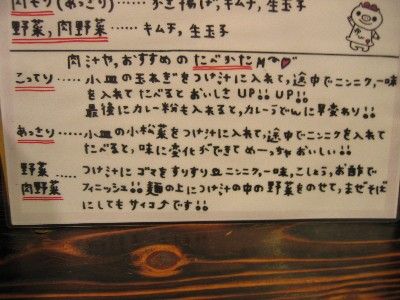 肉もり(あっさり)……かき揚げ、キムチ、生玉子
野菜,肉野菜……キムチ,生玉子
肉汁や,おすすめの たべかた
こってり……小皿の玉ねぎをつけ汁に入れて,途中でニンニク,一味
を入れてたべると おいしさ UP!! UP!!
最後にカレー粉も入れると,カレーうどんに早変わり!!
あっさり……小皿の小松菜をつけ汁に入れて,途中でニンニクを入れて
たべると,味に変化ができて めーっちゃ おいしい!!
野菜
肉野菜
……つけ汁に ゴマをすりすり ニンニク,一味,こしょう,お酢で
フィニッシュ!! 麺の上につけ汁の中の野菜をのせて,まぜそば
にしても サイコーです!!